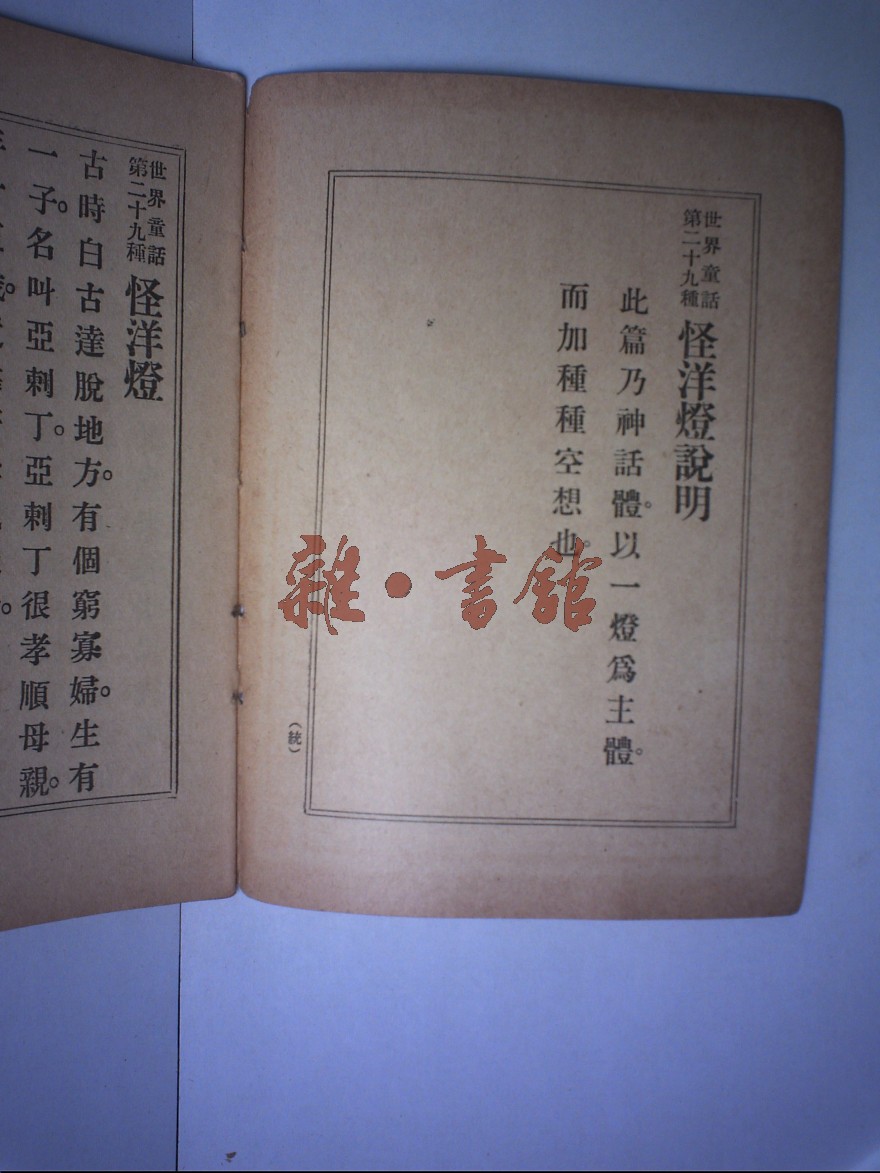 世界童話
第二十九種
怪洋燈說明
此篇乃神話體。以一燈爲主體。
而加種種空想也。
（統）
世界童話
第二十九種
怪洋燈
古時白古達脫地方。有個窮寡婦。生有
一子。名叫亞剌丁。亞剌丁很孝順母親。
雜·書館